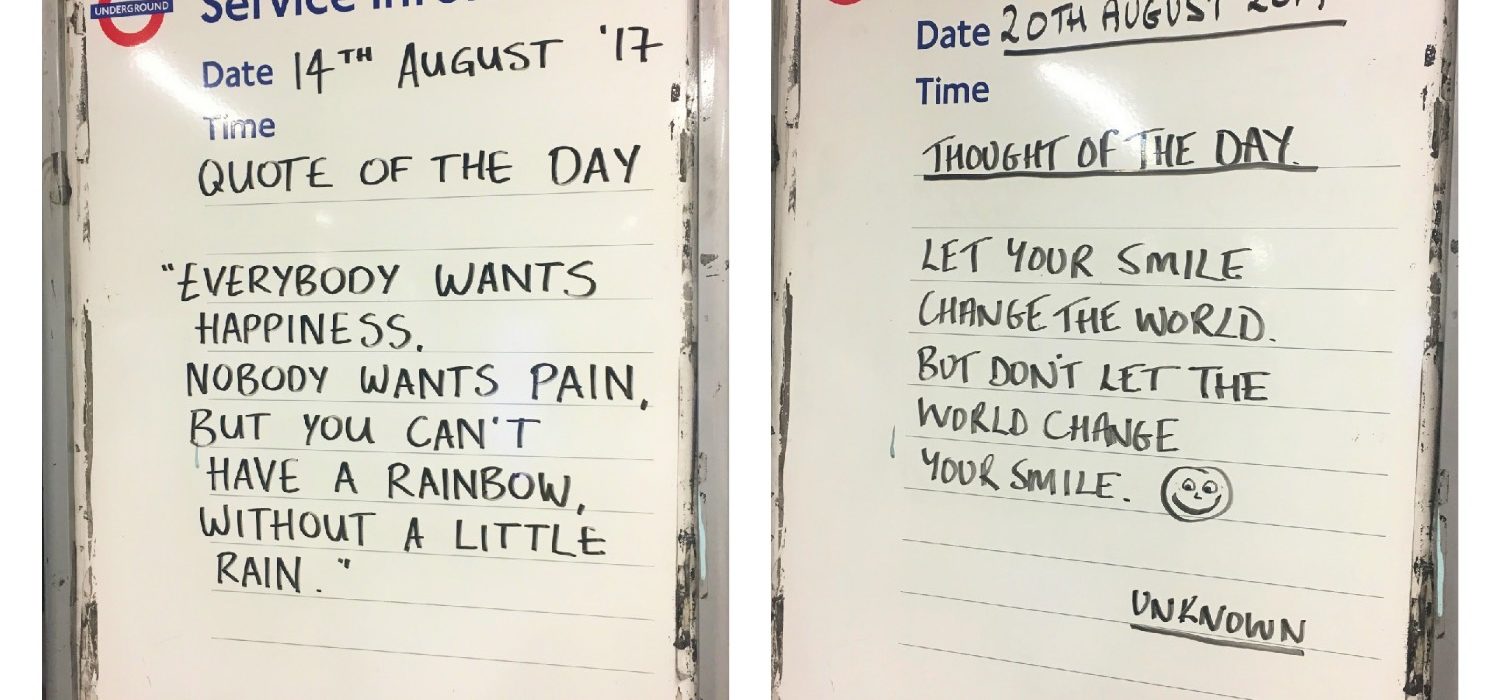 UNDERGROUND
Service
Date 14TH AUGUST '17
Time
QUOTE OF THE DAY
"EVERYBODY WANTS
HAPPINESS.
NOBODY WANTS PAIN,
BUT YOU CAN'T
HAVE A RAINBOW,
WITHOUT A LITTLE
RAIN."
Date 20TH AUGUST
Time
THOUGHT OF THE DAY.
LET YOUR SMILE
CHANGE THE WORLD.
BUT DON'T LET THE
WORLD CHANGE
YOUR SMILE.
UNKNOWN